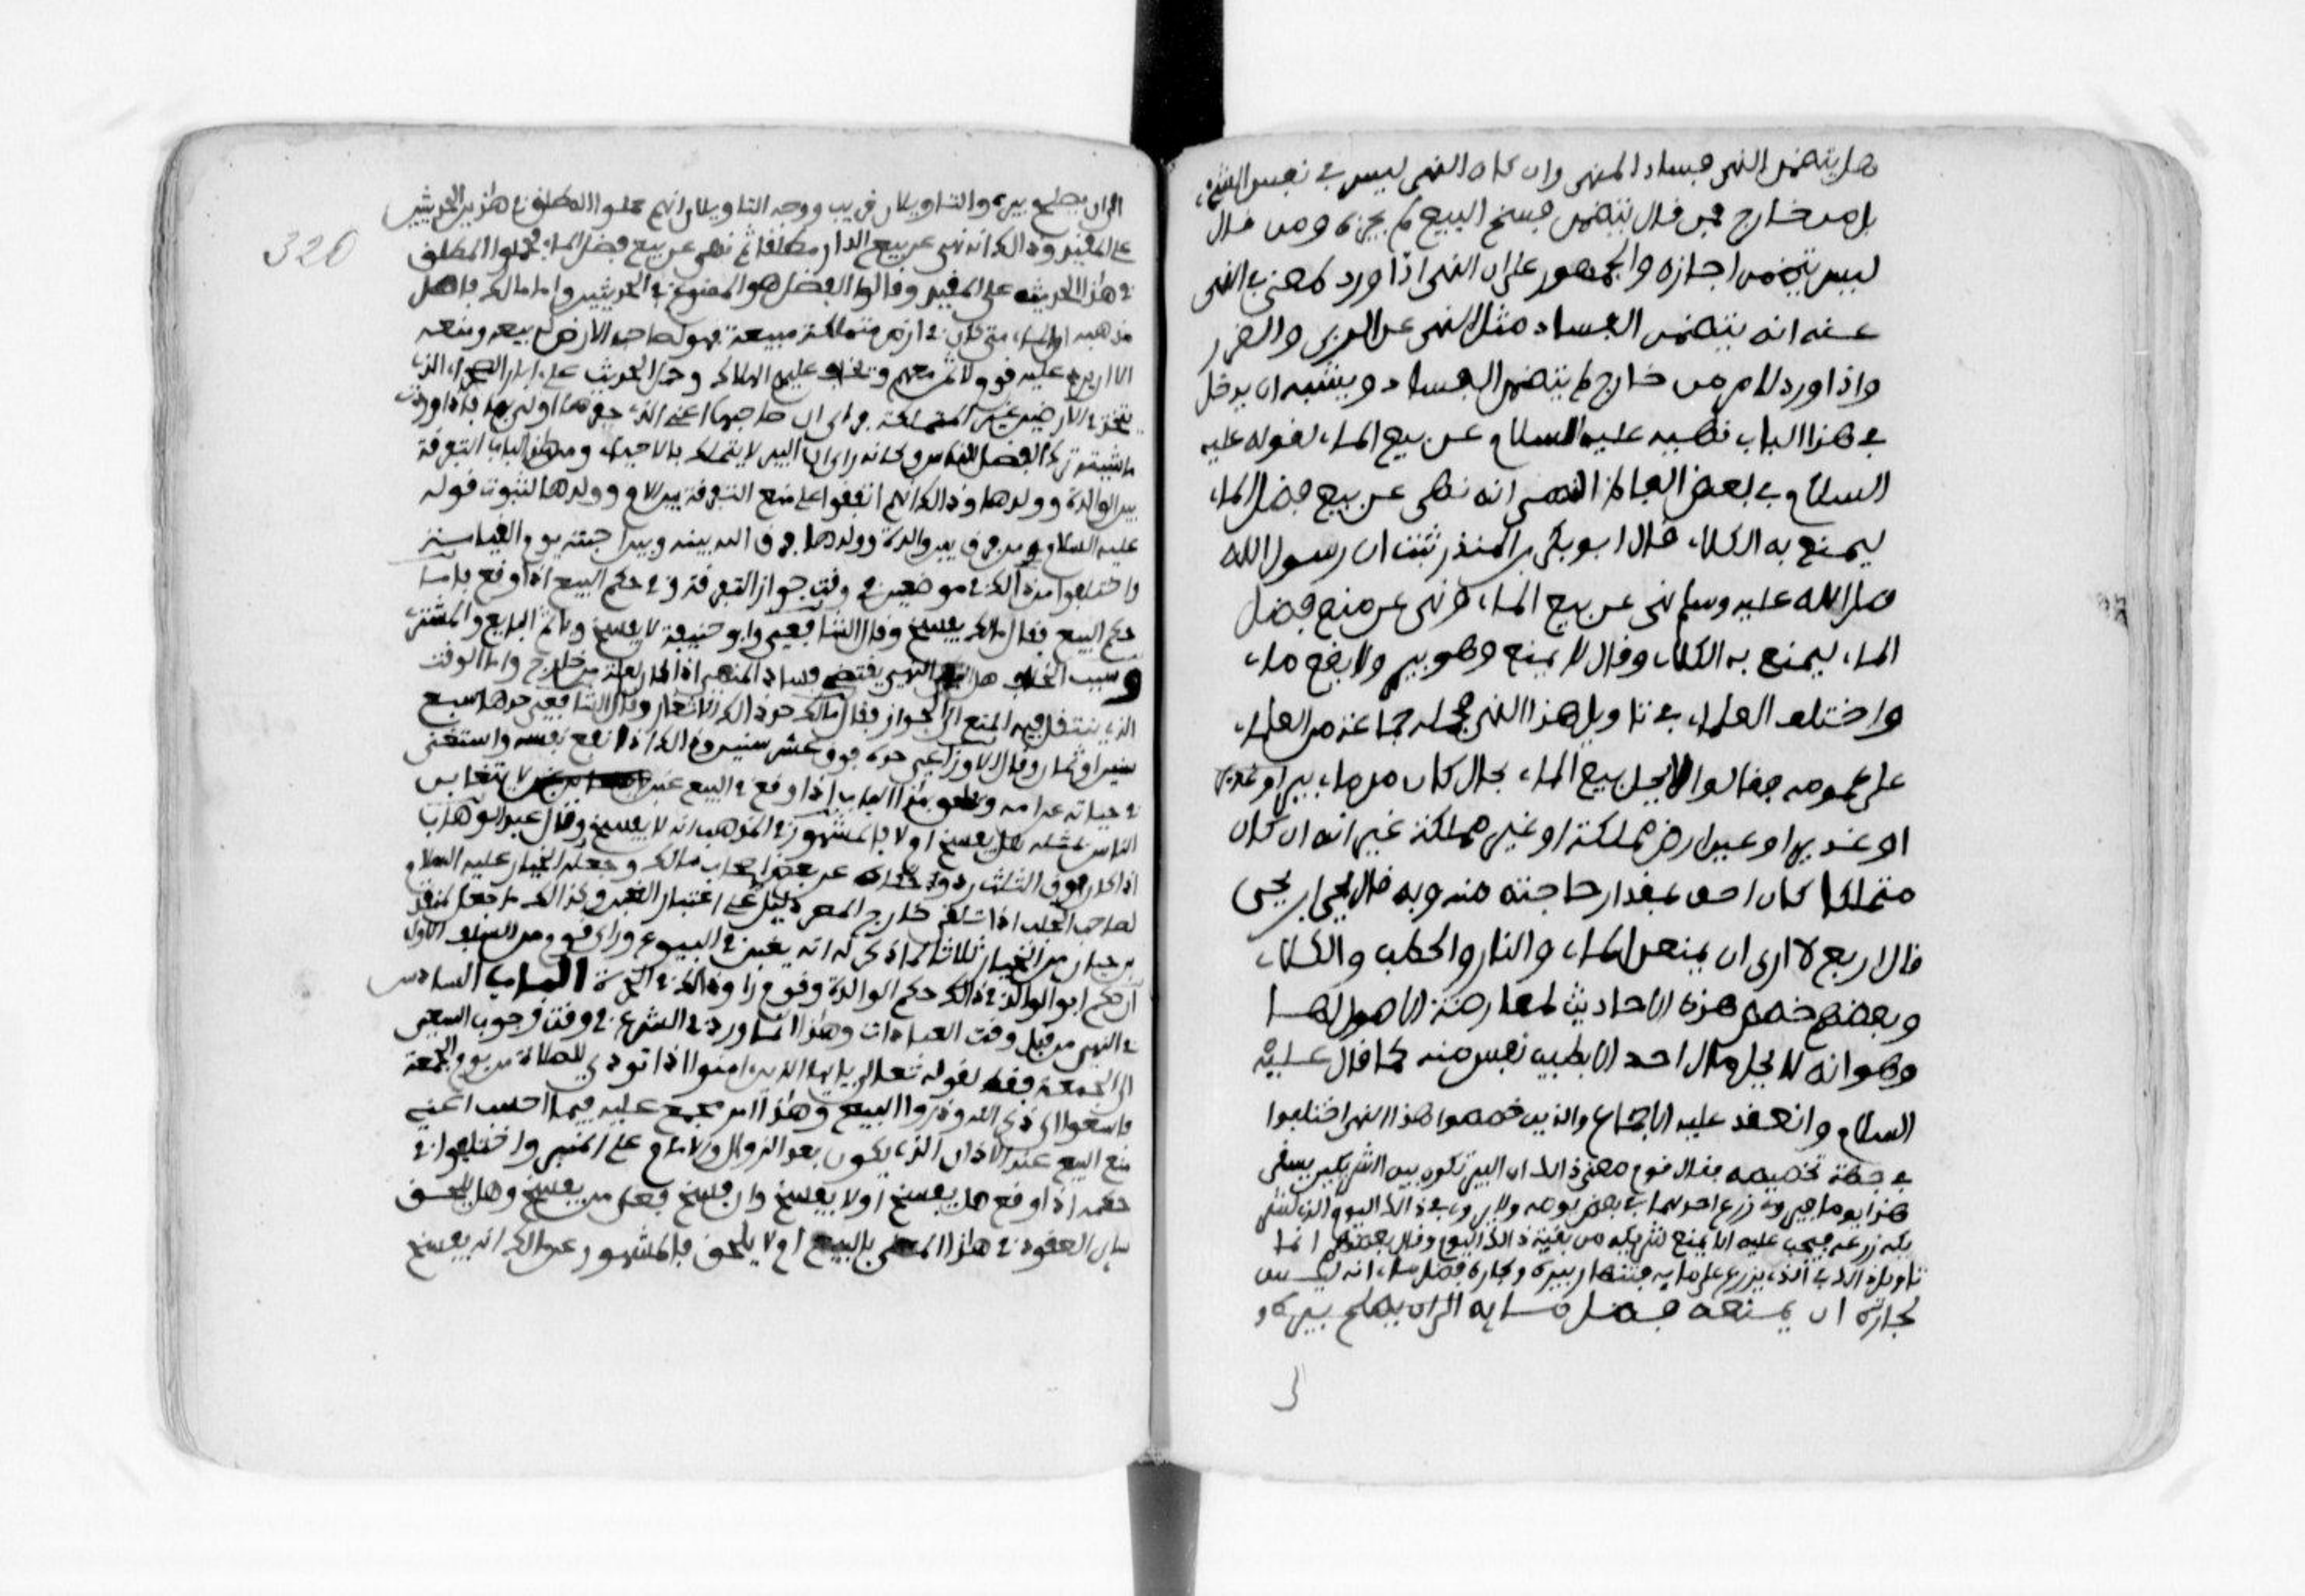 هل يتضمن النهي فساد المنهي وان كان النهي ليس في نفس الشيء
بل من خارج فمن قال يتضمن فسخ البيع لم يجزه ومن قال
ليس يتضمن اجازه والجمهور على ان النهي اذا ورد لمعنى في المنهي
عنه انه يتضمن الفساد مثل النهي عن الربى والغرر
واذا ورد لامر من خارج لم يتضمن الفساد ويشبه ان يدخل
في هذا الباب نهيه عليه السلام عن بيع الماء لقوله عليه
السلام في بعض الفاظه انه نهى عن بيع فضل الماء
ليمنع به الكلاء قال ابو بكر بن المنذر ثبت ان رسول الله
صلى الله عليه وسلم نهى عن بيع الماء ونهى عن منع فضل
الماء ليمنع به الكلاء وقال لا يمنع وهو بير ولا نقع ماء
واختلف العلماء في تاويل هذا النهي فحمله جماعة من العلماء
على عمومه فقالوا لا يحل بيع الماء بحال كان من ماء بير او غدير
او عين في ارض مملكة او غير مملكة غير انه ان كان
متملكا كان احق بمقدار حاجته منه وبه قال يحيى بن يحيى
قال اربع لا ارى ان يمنعن الماء والنار والحطب والكلاء
وبعضهم خصص هذه الاحاديث لمعارضة الاصول لها
وهو انه لا يحل مال احد الا بطيب نفس منه كما قال عليه
السلام وانعقد عليه الاجماع والذين خصصوا هذا النهي اختلفوا
في جهة تخصيصه فقال قوم معنى ذالك ان البير تكون بين الشريكين يسقى
هذا يوما وهذا يوما زرع احدهما في بعض يومه ولا يروى في ذالك اليوم الذي لشر
يكه زرعه فيجب عليه الا يمنع شريكه من بقية ذالك اليوم وقال بعضهم انما
تاويل ذالك في الذي يزرع على مايه فتنهار بيره ولجاره فضل ماء انه ليس
لجاره ان يمنعه فضل مايه الى ان يصلح بيره و
320
الى ان يصلح بيره والتاويلان قريب ووجه التاويلين انهم حملوا المطلق في هذين الحديثين
على المقيد وذالك انه نهى عن بيع الماء مطلقا ثم نهى عن بيع فضل الماء فحملوا المطلق
في هذا الحديث على المقيد وقالوا الفضل هو الممنوع في الحديثين واما مالك فاصل
مذهبه ان الماء متى كان في ارض متملكة منبعه فهو لصاحب الارض له بيعه ومنعه
الا ان يرد عليه قوم لا ثمن معهم ويخاف عليهم الهلاك وحمل الحديث على ابار الصحراء التي
تتخذ في الارضين غير المتملكة فراى ان صاحبها اعني الذي حفرها اولى بها فاذا روت
ماشيته ترك الفضل للناس وكانه راى ان البير لا يتملك بالاحياء ومن هذا الباب التفرقة
بين الوالدة وولدها وذالك انهم اتفقوا على منع التفرقة بين الام وولدها لثبوت قوله
عليه السلام من فرق بين والدة وولدها فرق الله بينه وبين احبته يوم القيامة
واختلفوا من ذالك في موضعين في وقت جواز التفرقة وفي حكم البيع اذا وقع فاما
حكم البيع فقال مالك يفسخ وقال الشافعي وابو حنيفة لا يفسخ واثم البايع والمشتري
وسبب الخلاف هل النهي يقتضي فساد المنهي اذا كان لعلة من خارج واما الوقت
الذي ينتقل فيه المنع الى الجواز فقال مالك حد ذالك الاثغار وقال الشافعي حدها سبع
سنين او ثمان وقال الاوزاعي حده فوق عشر سنين وذالك اذا نفع نفسه واستغنى
في حياته عن امه ويلحق بهذا الباب اذا وقع في البيع غبن لا يتغابن
الناس بمثله هل يفسخ او لا فالمشهور في المذهب انه لا يفسخ وقال عبد الوهاب
اذا كان فوق الثلث رد وحكاه عن بعض اصحاب مالك وجعله الخيار عليه السلام
لصاحب الجلب اذا تلقي خارج المصر دليل على اعتبار الغبن وكذالك ما جعل لمنقذ
بن حبان من الخيار ثلاثا لما ذكر له انه يغبن في البيوع وراى قوم من السلف الاول
ان حكم ابو الوالد في ذالك حكم الوالدة وقوم راوا ذالك في الاخوة الباب السادس
في النهي من قبل وقت العبادات وهذا انما ورد في الشرع في وقت وجوب السعي
الى الجمعة فقط لقوله تعالى يايها الذين امنوا اذا نودي للصلاة من يوم الجمعة
فاسعوا الى ذكر الله وذروا البيع وهذا امر مجمع عليه فيما احسب اعني
منع البيع عند الاذان الذي يكون بعد الزوال والامام على المنبر واختلفوا في
حكمه اذا وقع هل يفسخ او لا يفسخ وان فسخ فعلى من يفسخ وهل يلحق
ساير العقود في هذا المعنى بالبيع او لا يلحق فالمشهور عن مالك انه يفسخ